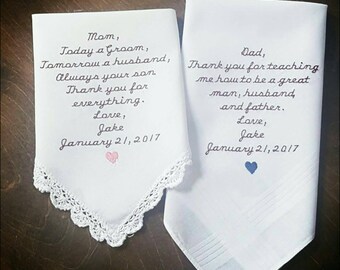 Mom,
Today a Groom,
Tomorrow a husband,
Always your son
Thank you for
everything.
Love,
Jake
January 21, 2017
Dad,
Thank you for teaching
me how to be a great
man, husband,
and father.
Love,
Jake
January 21, 2017